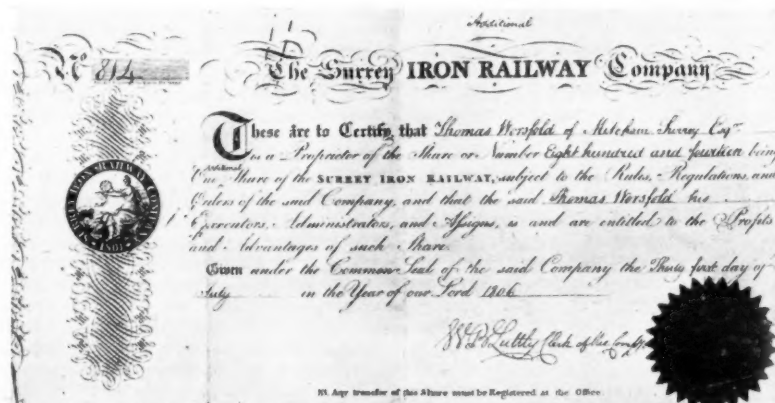 Additional
No. 814
The Surrey IRON RAILWAY Company
These are to Certify, that Thomas Worsfold of Mitcham Surrey Esqr.
is a Proprietor of the Share or Number Eight hundred and fourteen being
Additional
One Share of the SURREY IRON RAILWAY, subject to the Rules, Regulations, and
Orders of the said Company, and that the said Thomas Worsfold his
Executors, Administrators, and Assigns, is and are entitled to the Profits
and Advantages of such Share.
Given under the Common Seal of the said Company the Thirty first day of
July in the Year of our Lord 1806
Clerk of the Compy.
SURREY IRON RAILWAY COMPANY
1801
NB. Any transfer of this Share must be Registered at the Office.